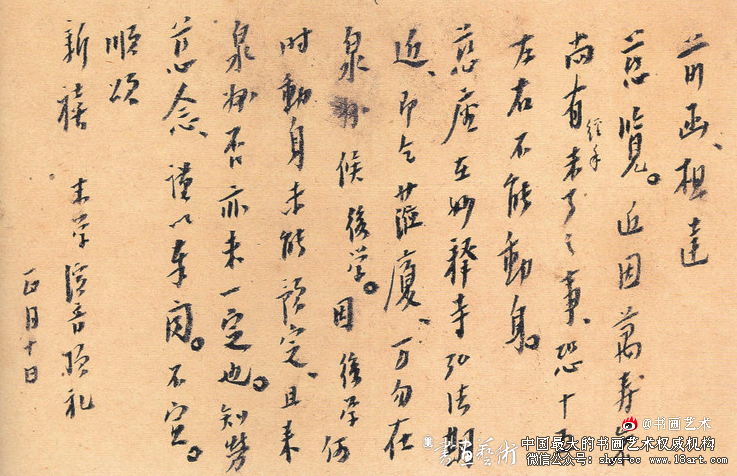 前函、想達
慈覽。近因萬壽岩
尚有經手未了之事、恐十
左右不能動身。
慈座在妙釋寺弘法期
近、即乞蒞廈、万勿在
泉州候後學。因後學何
時動身未能預定、且來
泉州否亦未一定也。知勞
慈念、謹以奉聞。不宣。
順頌
新禧 末學演音頂禮
正月十日
@书画艺术
書画藝術
中国最大的书画艺术权威机构
微信公众号：shys-cc www.18art.com